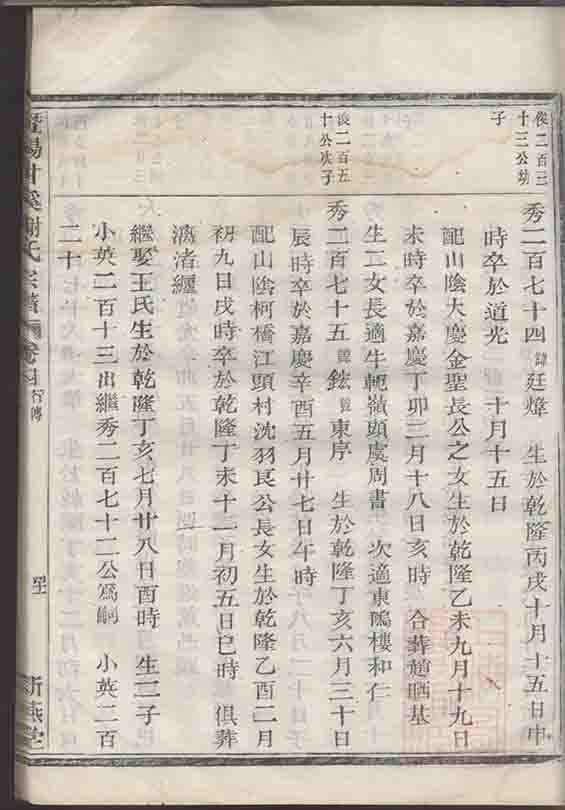 俊二百三
十三公幼
子
秀二百七十四 諱 廷煒 生於乾隆丙戌十月十五日申
時卒於道光 十月十五日
配山陰大慶金聖長公之女生於乾隆乙未九月十九日
未時卒於嘉慶丁卯三月十八日亥時 合葬
生二女長適牛軛嶺頭虞周書 次適東鴫樓和仁
俊二百五
十公次子
秀二百七十五 諱 鉉 號 東序 生於乾隆丁亥六月三十日
辰時卒於嘉慶辛酉五月廿七日午時
配山陰柯橋江頭村沈羽民公長女生於乾隆乙酉二月
初九日戌時卒於乾隆丁未十一月初五日巳時 俱葬
渚纏
繼娶王氏生於乾隆丁亥七月廿八日酉時 生二子
小英二百十三出繼秀二百七十二公為嗣 小英二百
二十
暨陽 溪謝氏宗譜 卷 行傳